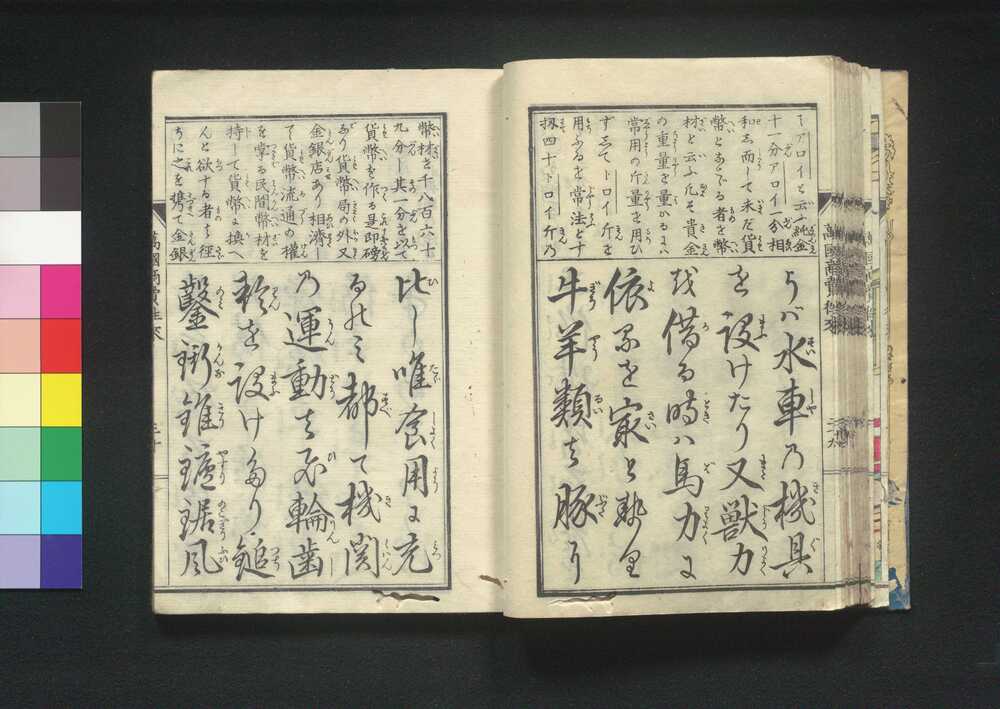 ミアロイと云ふ純金
十一分アロイ一分相
和し而して未だ貨
幣とあらざる者を幣
材と云ふ凡そ貴金
の重量を量るには
常用の斤量を用ひ
ずしてトロイ斤を
用ふるを常法とす
扨四十トロイ斤乃
うバ水車乃機具
を設けたり又獣力
越借る時ハ馬力に
依るを最と
牛羊類も豚り
萬國商賣徃來
幣材を千八百六十
九分し其一分を以て
貨幣を作る是即磅
あり貨幣局の外又
金銀店あり相濟し
て貨幣流通の權
を掌る民間幣材を
持して貨幣に換へ
んと欲する者は徑
ちに之を携て金銀
比し唯食用に充
るのミ都て機関
乃運動も
輪歯
軫を設けあり鎚
鑿
錐鑢鋸風
萬國商賣徃來
三十